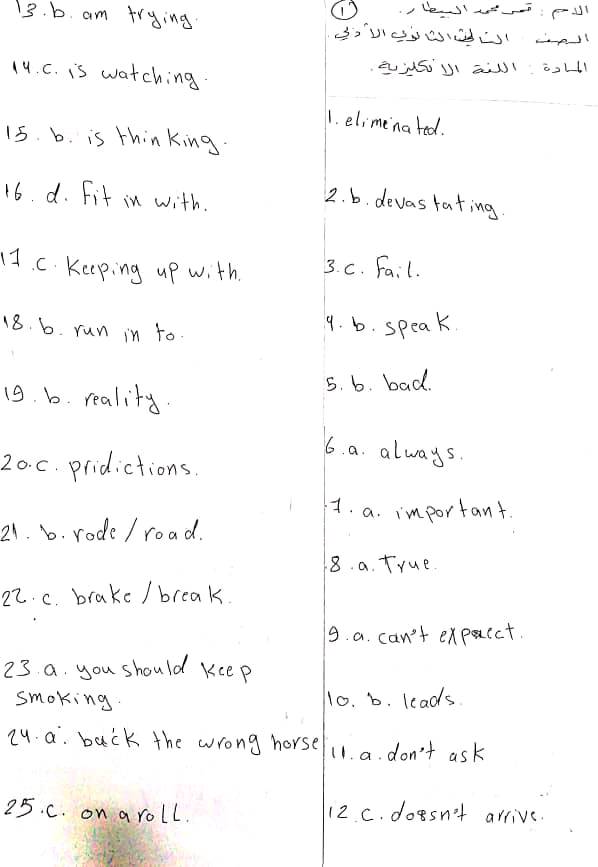 الاسم : قمر محمد البيطار .
①
الصف : الثالث الثانوي الأدبي
المادة : اللغة الانكليزية .
1. elimenated.
2. b. devastating.
3. c. fail.
4. b. speak.
5. b. bad.
6. a. always.
7. a. important.
8. a. True.
9. a. can't expaect.
10. b. leads.
11. a. don't ask
12. c. doesn't arrive.
13. b. am trying.
14. c. is watching.
15. b. is thinking.
16. d. fit in with.
17. c. Keeping up with.
18. b. run in to.
19. b. reality.
20. c. pridictions.
21. b. rode / road.
22. c. brake / break.
23. a. you should keep
smoking.
24. a. back the wrong horse
25. c. on a roll.